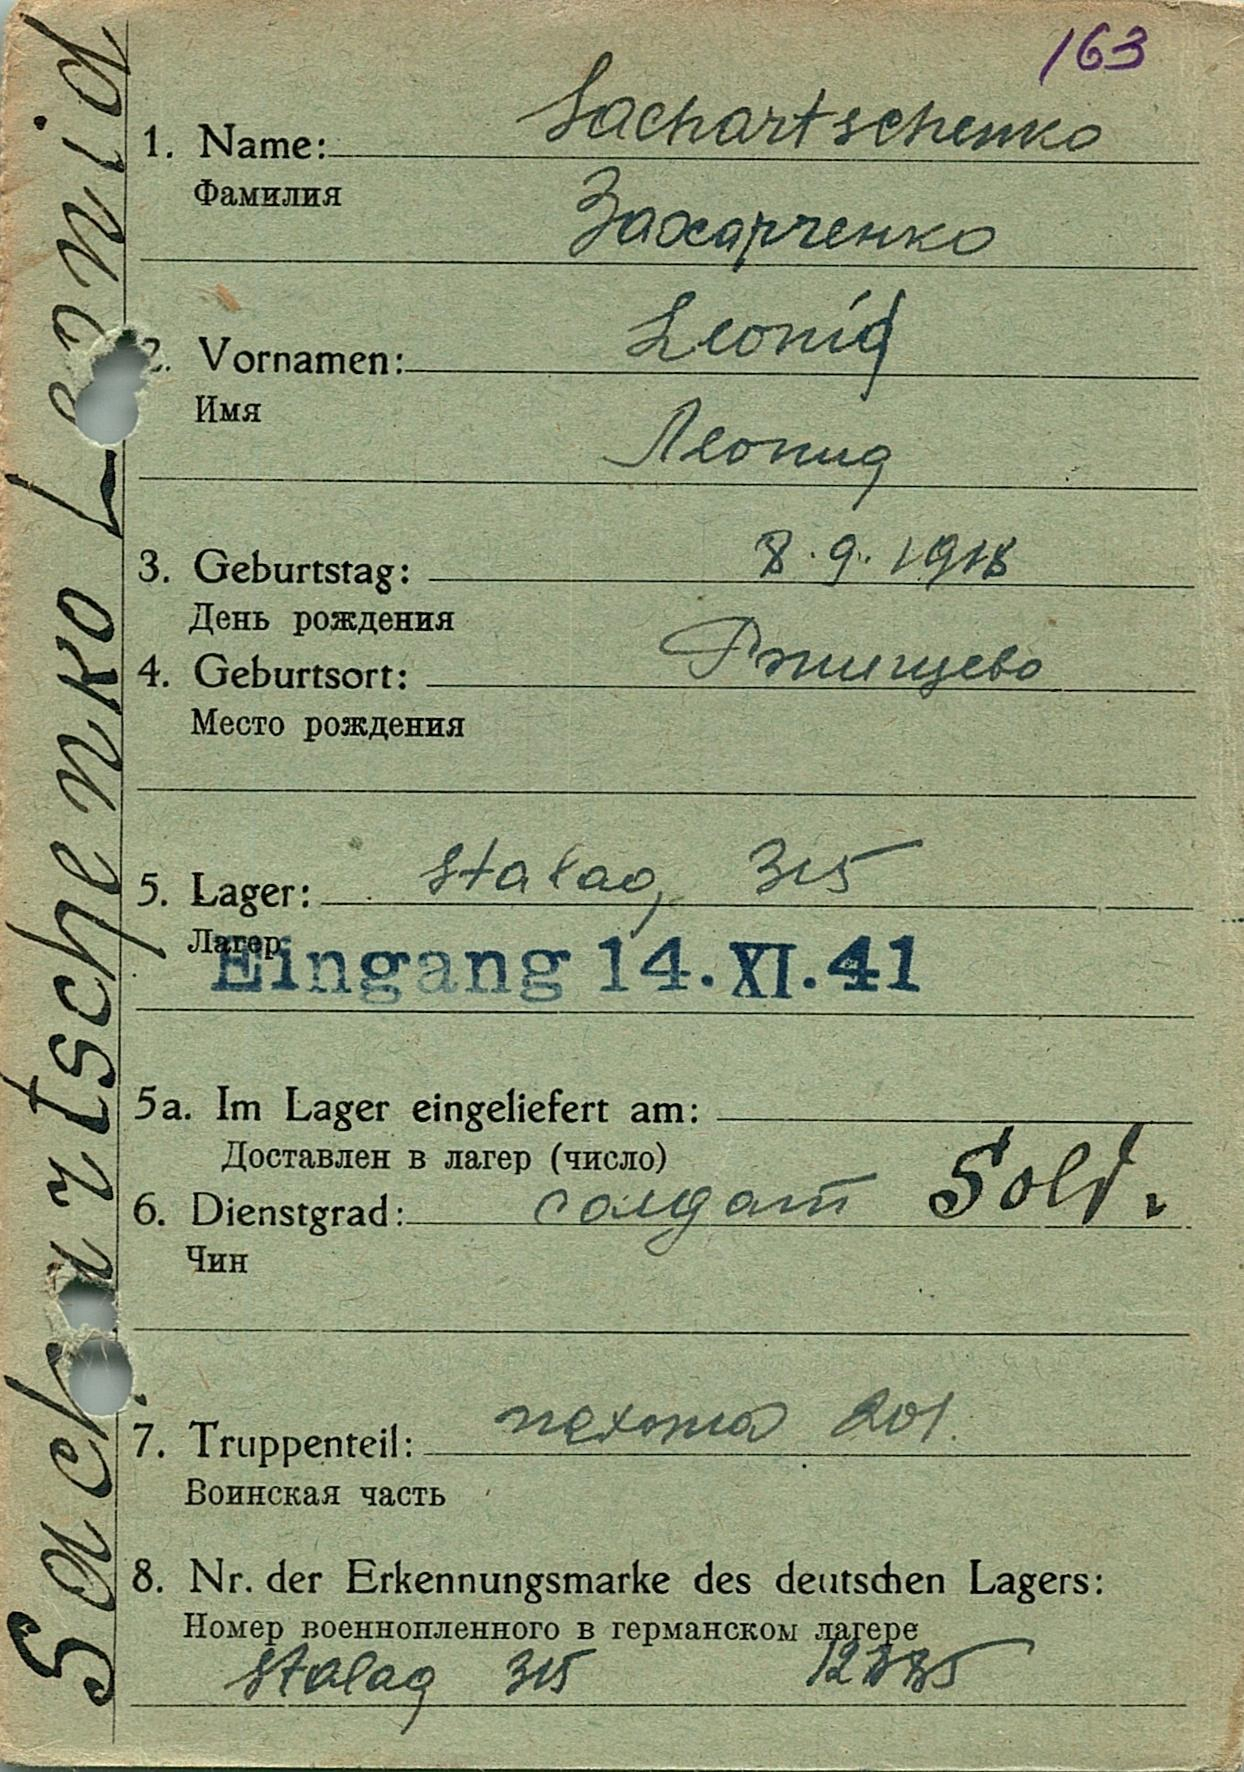 163
Sachartschenko Leonid
1. Name: Sachartschenko
Фамилия
Захарченко
2. Vornamen: Leonid
Имя
Леонид
3. Geburtstag: 8.9.1918
День рождения
4. Geburtsort: Ржищево
Место рождения
5. Lager: Stalag 315
Лагер
Eingang 14.XI.41
5a. Im Lager eingeliefert am:
Доставлен в лагер (число)
6. Dienstgrad: солдат Sold.
Чин
7. Truppenteil: пехота 201.
Воинская часть
8. Nr. der Erkennungsmarke des deutschen Lagers:
Номер военнопленного в германском лагере
Stalag 315